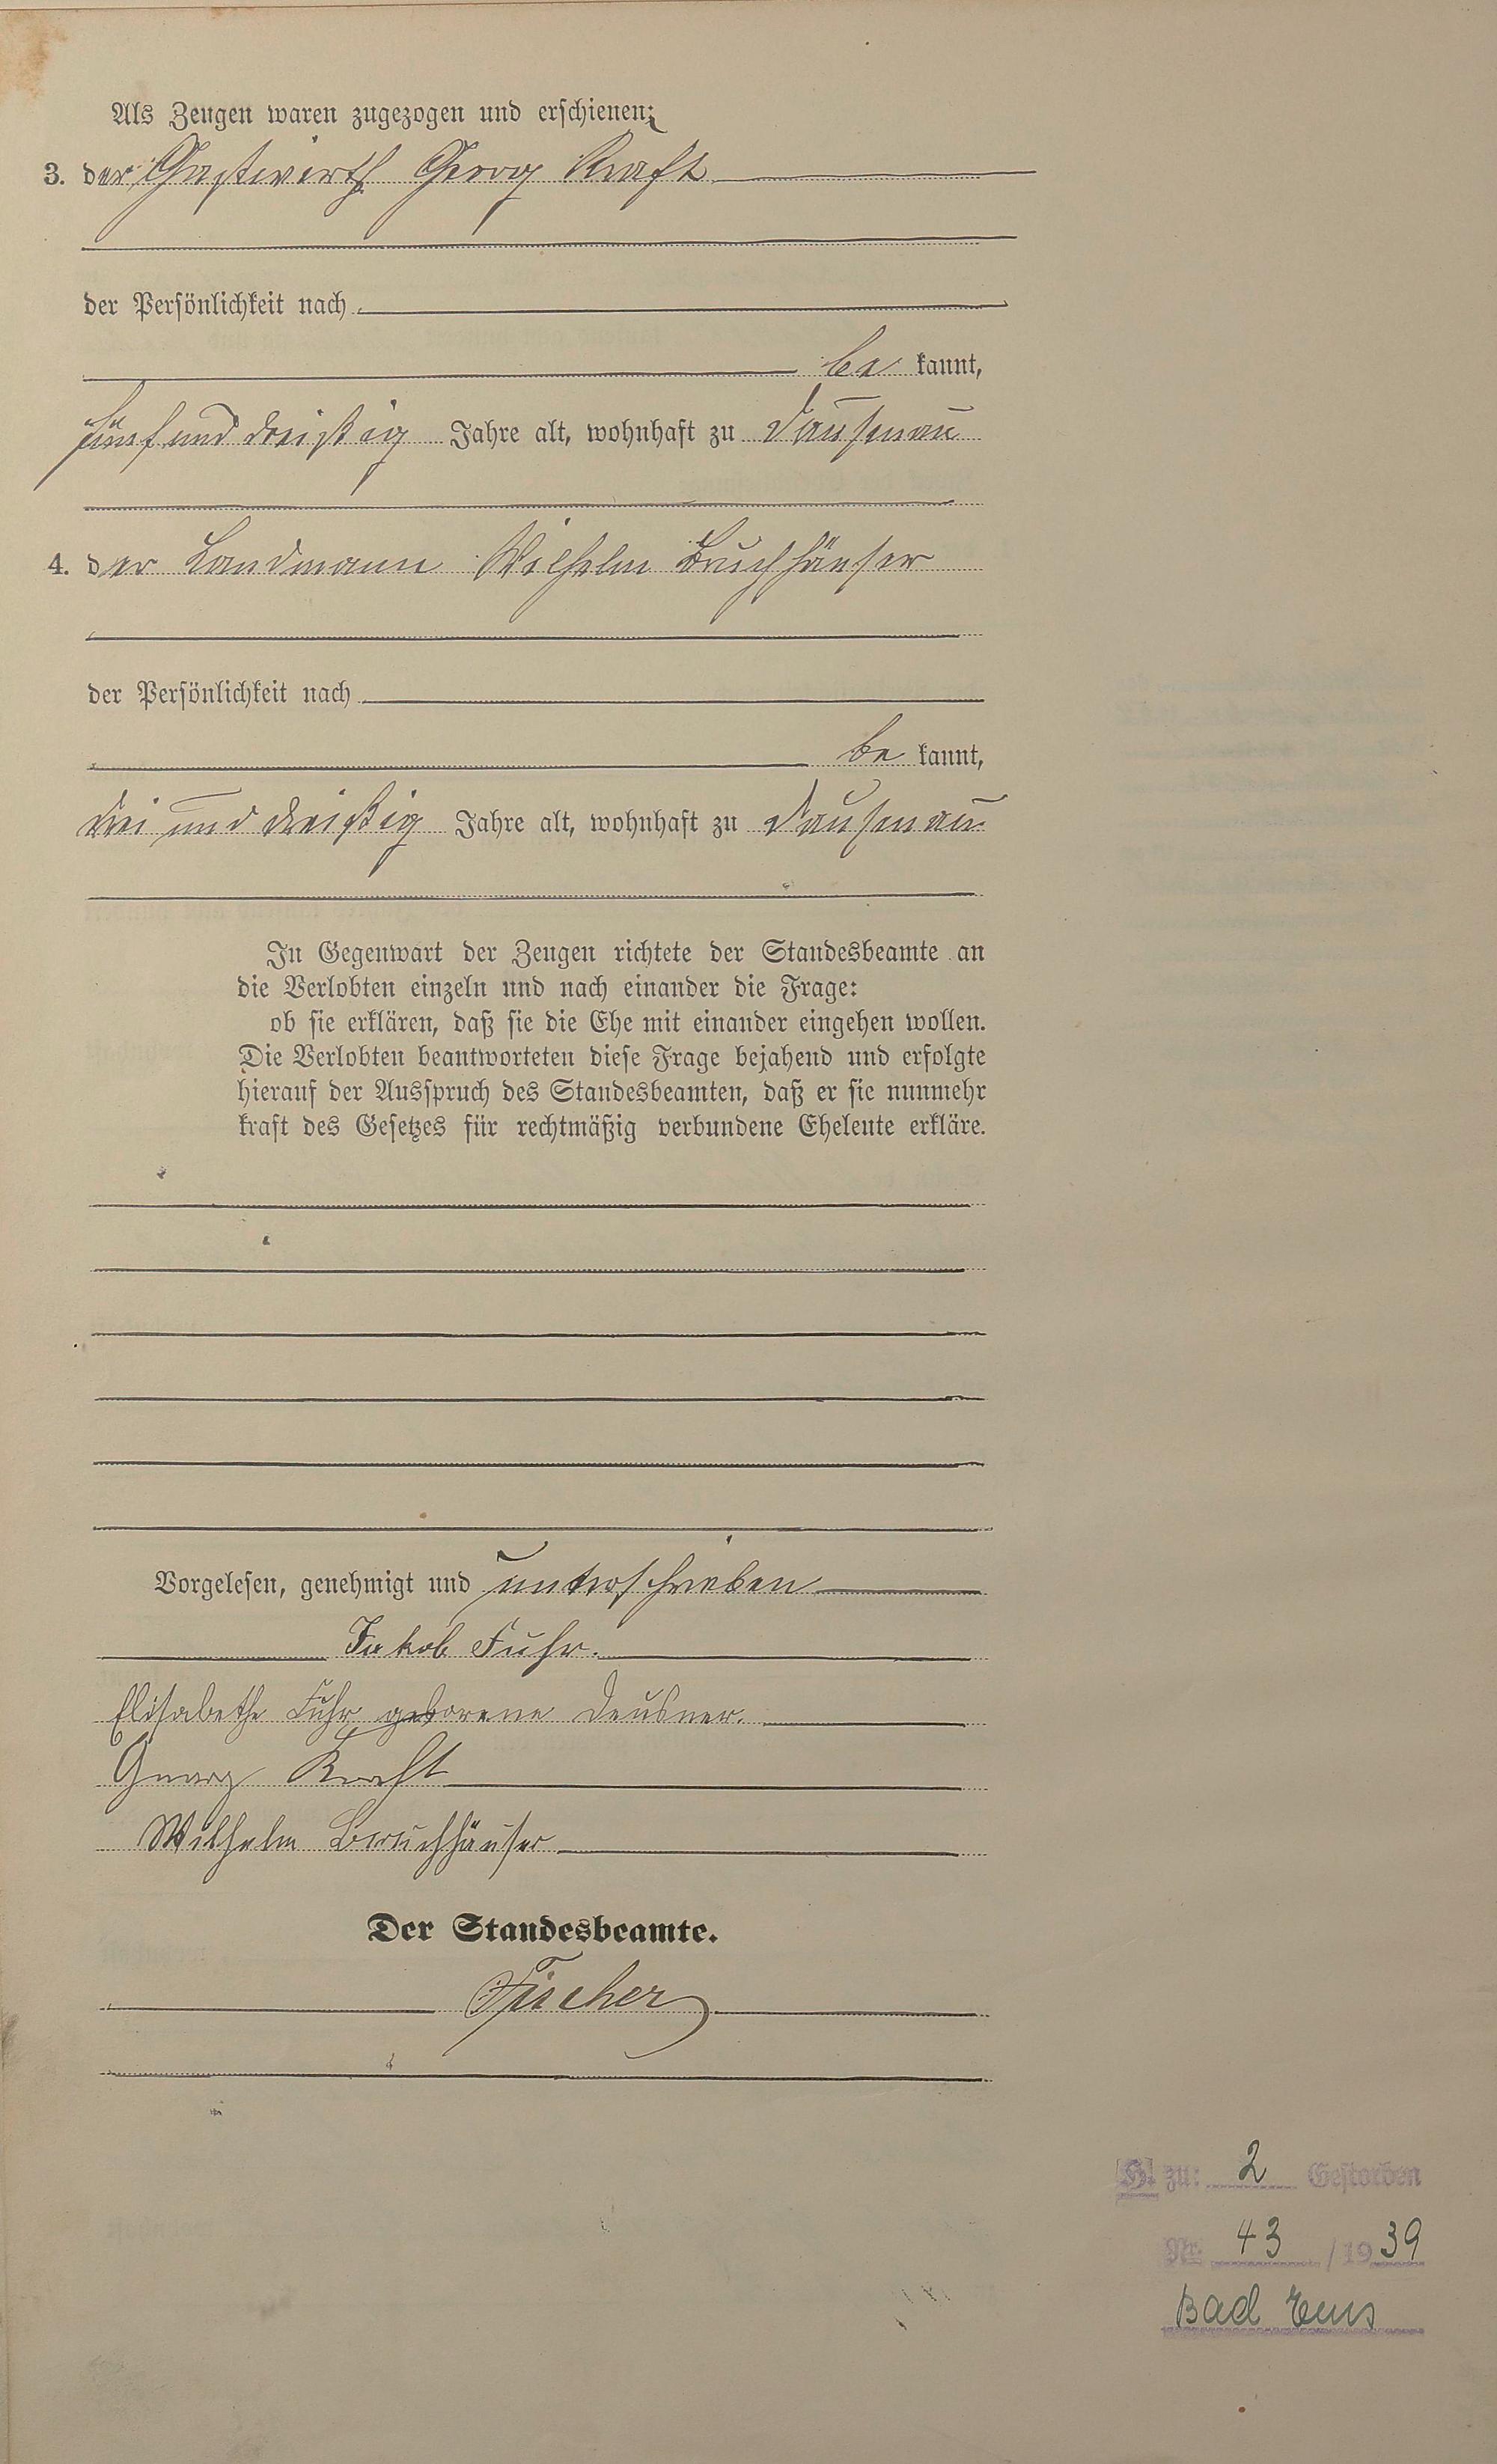 Als Zeugen waren zugezogen und erschienen:
3. der Gastwirth Georg Kraft
der Persönlichkeit nach
be kannt,
fünf und dreißig Jahre alt, wohnhaft zu Dausenau
4. der Landmann Wilhelm Bruchhäuser
der Persönlichkeit nach
be kannt,
drei und dreißig Jahre alt, wohnhaft zu Dausenau
In Gegenwart der Zeugen richtete der Standesbeamte an
die Verlobten einzeln und nach einander die Frage:
ob sie erklären, daß sie die Ehe mit einander eingehen wollen.
Die Verlobten beantworteten diese Frage bejahend und erfolgte
hierauf der Ausspruch des Standesbeamten, daß er sie nunmehr
kraft des Gesetzes für rechtmäßig verbundene Eheleute erkläre.
Vorgelesen, genehmigt und unterschrieben
Jakob Fuhr.
Elisabethe Fuhr geborene Deusner.
Georg Kraft
Wilhelm Bruchhäuser
Der Standesbeamte.
Fischer
[H] zu: 2 Gestorben
Nr. 43 /1939
Bad Ems